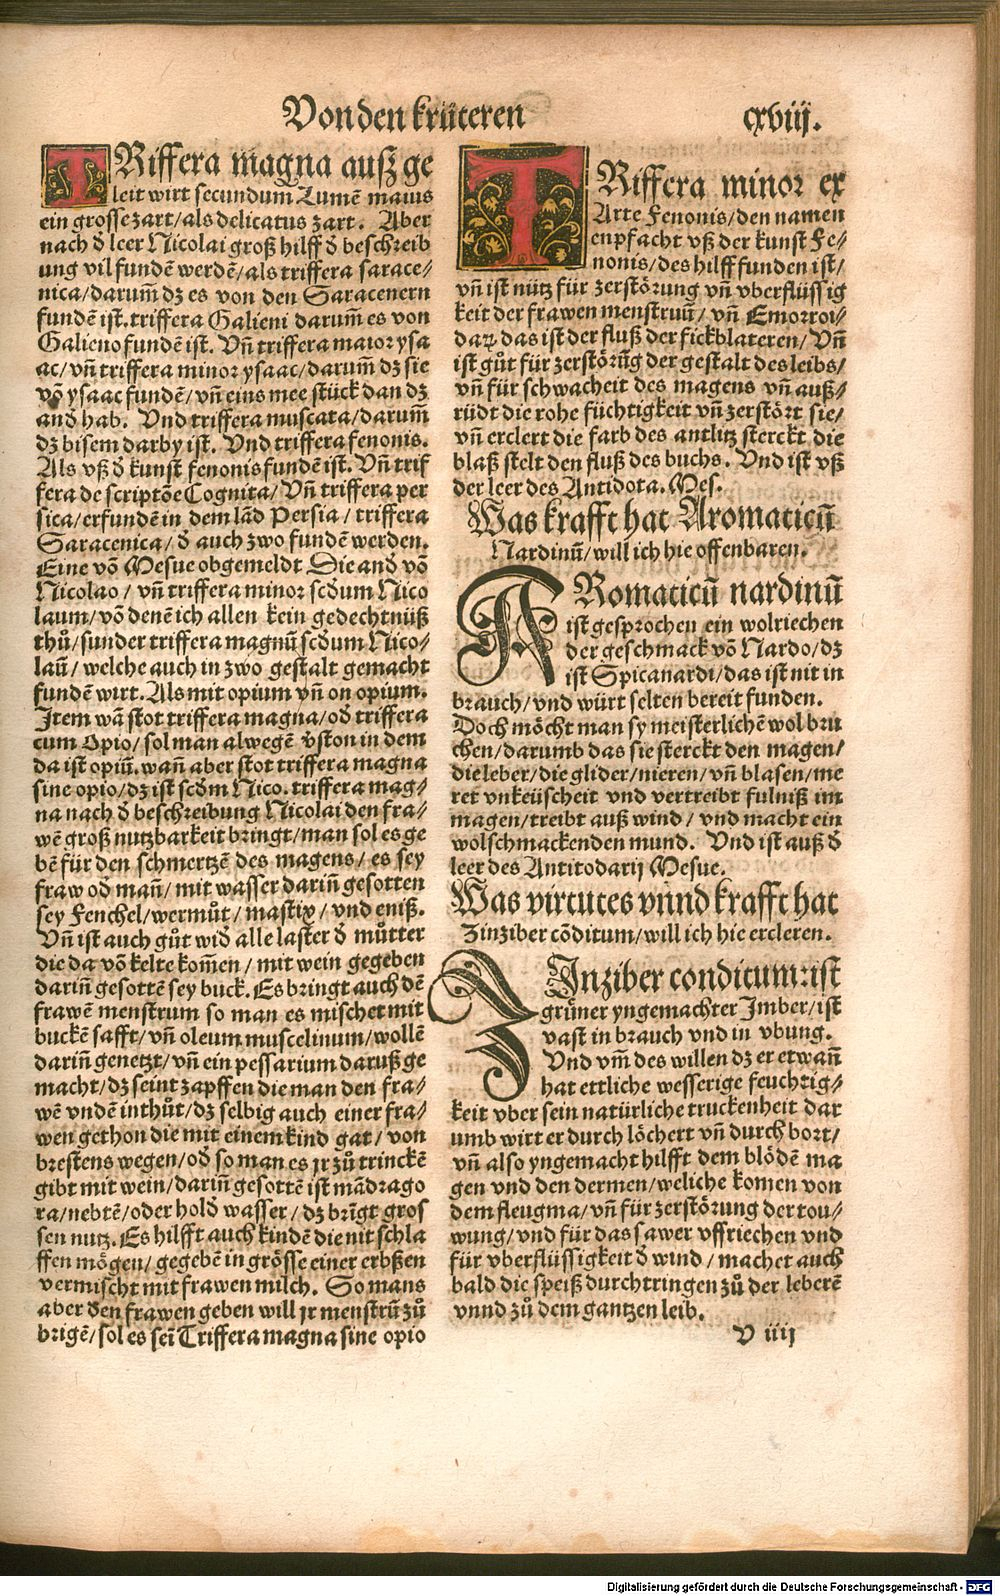 Von den krüteren
cxviij.
TRiffera magna auß ge
leit wirt secundum Lumē maius
ein grosse zart/als delicatus zart. Aber
nach d̄ leer Nicolai groß hilff d̄ beschreib
ung vil fundē werdē/als triffera sarace⸗
nica/darum̄ dz es von den Saracenern
fundē ist.triffera Galieni darum̄ es von
Galieno fundē ist. Vn̄ triffera maior ysa
ac/vn̄ triffera minor ysaac/darum̄ dz sie
vō ysaac fundē/vn̄ eins mee stück dan dz
and̄ hab. Vnd triffera muscata/darum̄
dz bisem darby ist. Vnd triffera fenonis.
Als vß d̄ kunst fenonis fundē ist. Vn̄ trif
fera de scriptōe Cognita/Vn̄ triffera per
sica/erfunden in dem lād Persia/triffera
Saracenica/d̄ auch zwo funden werden.
Eine vō Mesue obgemeldt Die and̄ vō
Nicolao/vn̄ triffera minor scd̄um Nico
laum/vō denē ich allen kein gedechtnüß
thů/sunder triffera magnū scd̄um Nico⸗
laū/welche auch in zwo gestalt gemacht
funden wirt. Als mit opium vn̄ on opium.
Item wā stot triffera magna/od̄ triffera
cum Opio/sol man alwegē v̄ston in dem
da ist opiū.wan̄ aber stot triffera magna
sine opio/dz ist scd̄m Nico.triffera mag⸗
na nach d̄ beschreibung Nicolai den fra⸗
wē groß nutzbarkeit bringt/man sol es ge
bē für den schmertzē des magens/es sey
fraw od̄ man̄/mit wasser darin̄ gesotten
sey Fenchel/wermůt/mastix/vnd eniß.
Vn̄ ist auch gůt wid̄ alle laster d̄ můtter
die da vō kelte kom̄en/mit wein gegeben
darin̄ gesottē sey buck. Es bringt auch dē
frawē menstrum so man es mischet mit
buckē safft/vn̄ oleum muscelinum/wollē
darin̄ genetzt/vn̄ ein pessarium daruß ge
macht/dz seint zapffen die man den fra⸗
wē vndē inthůt/dz selbig auch einer fra⸗
wen gethon die mit einem kind gat/von
brestens wegen/od̄ so man es jr zů trinckē
gibt mit wein/darin̄ gesottē ist mādrago
ra/nebtē/oder hold̄ wasser/dz brīgt gros
sen nutz. Es hilfft auch kindē die nit schla
ffen mögen/gegebē in grösse einer erbßen
vermischt mit frawen milch. So mans
aber den frawen geben will jr menstrū zů
brigē/sol es seī Triffera magna sine opio
TRiffera minor ex
Arte Fenonis/den namen
enpfacht vß der kunst Fe⸗
nonis/des hilff funden ist/
vn̄ ist nütz für zerstörung vn̄ vberflüssig
keit der frawen menstruū/vn̄ Emorroi⸗
daꝝ das ist der fluß der fickblateren/Vn̄
ist gůt für zerstörūg der gestalt des leibs/
vn̄ für schwacheit des magens vn̄ auß⸗
rüdt die rohe füchtigkeit vn̄ zerstört sie/
vn̄ erclert die farb des antlitz sterckt die
blaß stelt den fluß des buchs. Vnd ist vß
der leer des Antidota. Mes.
Was krafft hat Aromaticū
Nardinū/will ich hie offenbaren.
ARomaticū nardinū
ist gesprochen ein wolriechen
der geschmack vō Nardo/dz
ist Spicanardi/das ist nit in
brauch/vnd würt selten bereit funden.
Doch möcht man sy meisterlichē wol bru
chen/darumb das sie sterckt den magen/
die leber/die glider/nieren/vn̄ blasen/me
ret vnkeüscheit vnd vertreibt fulniß im
magen/treibt auß wind/vnd macht ein
wolschmackenden mund. Vnd ist auß d̄
leer des Antitodarij Mesue.
Was virtutes vnnd krafft hat
Zinziber cōditum/will ich hie ercleren.
ZInziber conditum:ist
grüner yngemachter Imber/ist
vast in brauch vnd in vbung.
Vnd vm̄ des willen dz er etwan̄
hat ettliche wesserige feuchtig⸗
keit vber sein natürliche truckenheit dar
umb wirt er durch löchert vn̄ durch bort/
vn̄ also yngemacht hilfft dem blödē ma
gen vnd den dermen/weliche komen von
dem fleugma/vn̄ für zerstörung der tou⸗
wung/vnd für das sawer vffriechen vnd
für vberflüssigkeit d̄ wind/machet auch
bald die speiß durchtringen zů der leberē
vnnd zů dem gantzen leib.
V iiij
Digitalisierung gefördert durch die Deutsche Forschungsgemeinschaft - DFG